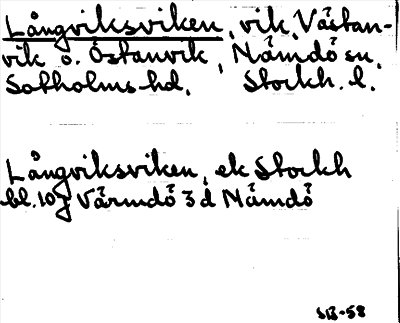 Långviksviken, vik, Västan-
vik o. Östanvik, Nämdö sn,
Sotholms hd, Stockh. l.
Långviksviken, ek Stockh
bl. 107 Värmdö 3 d Nämdö
SB-58